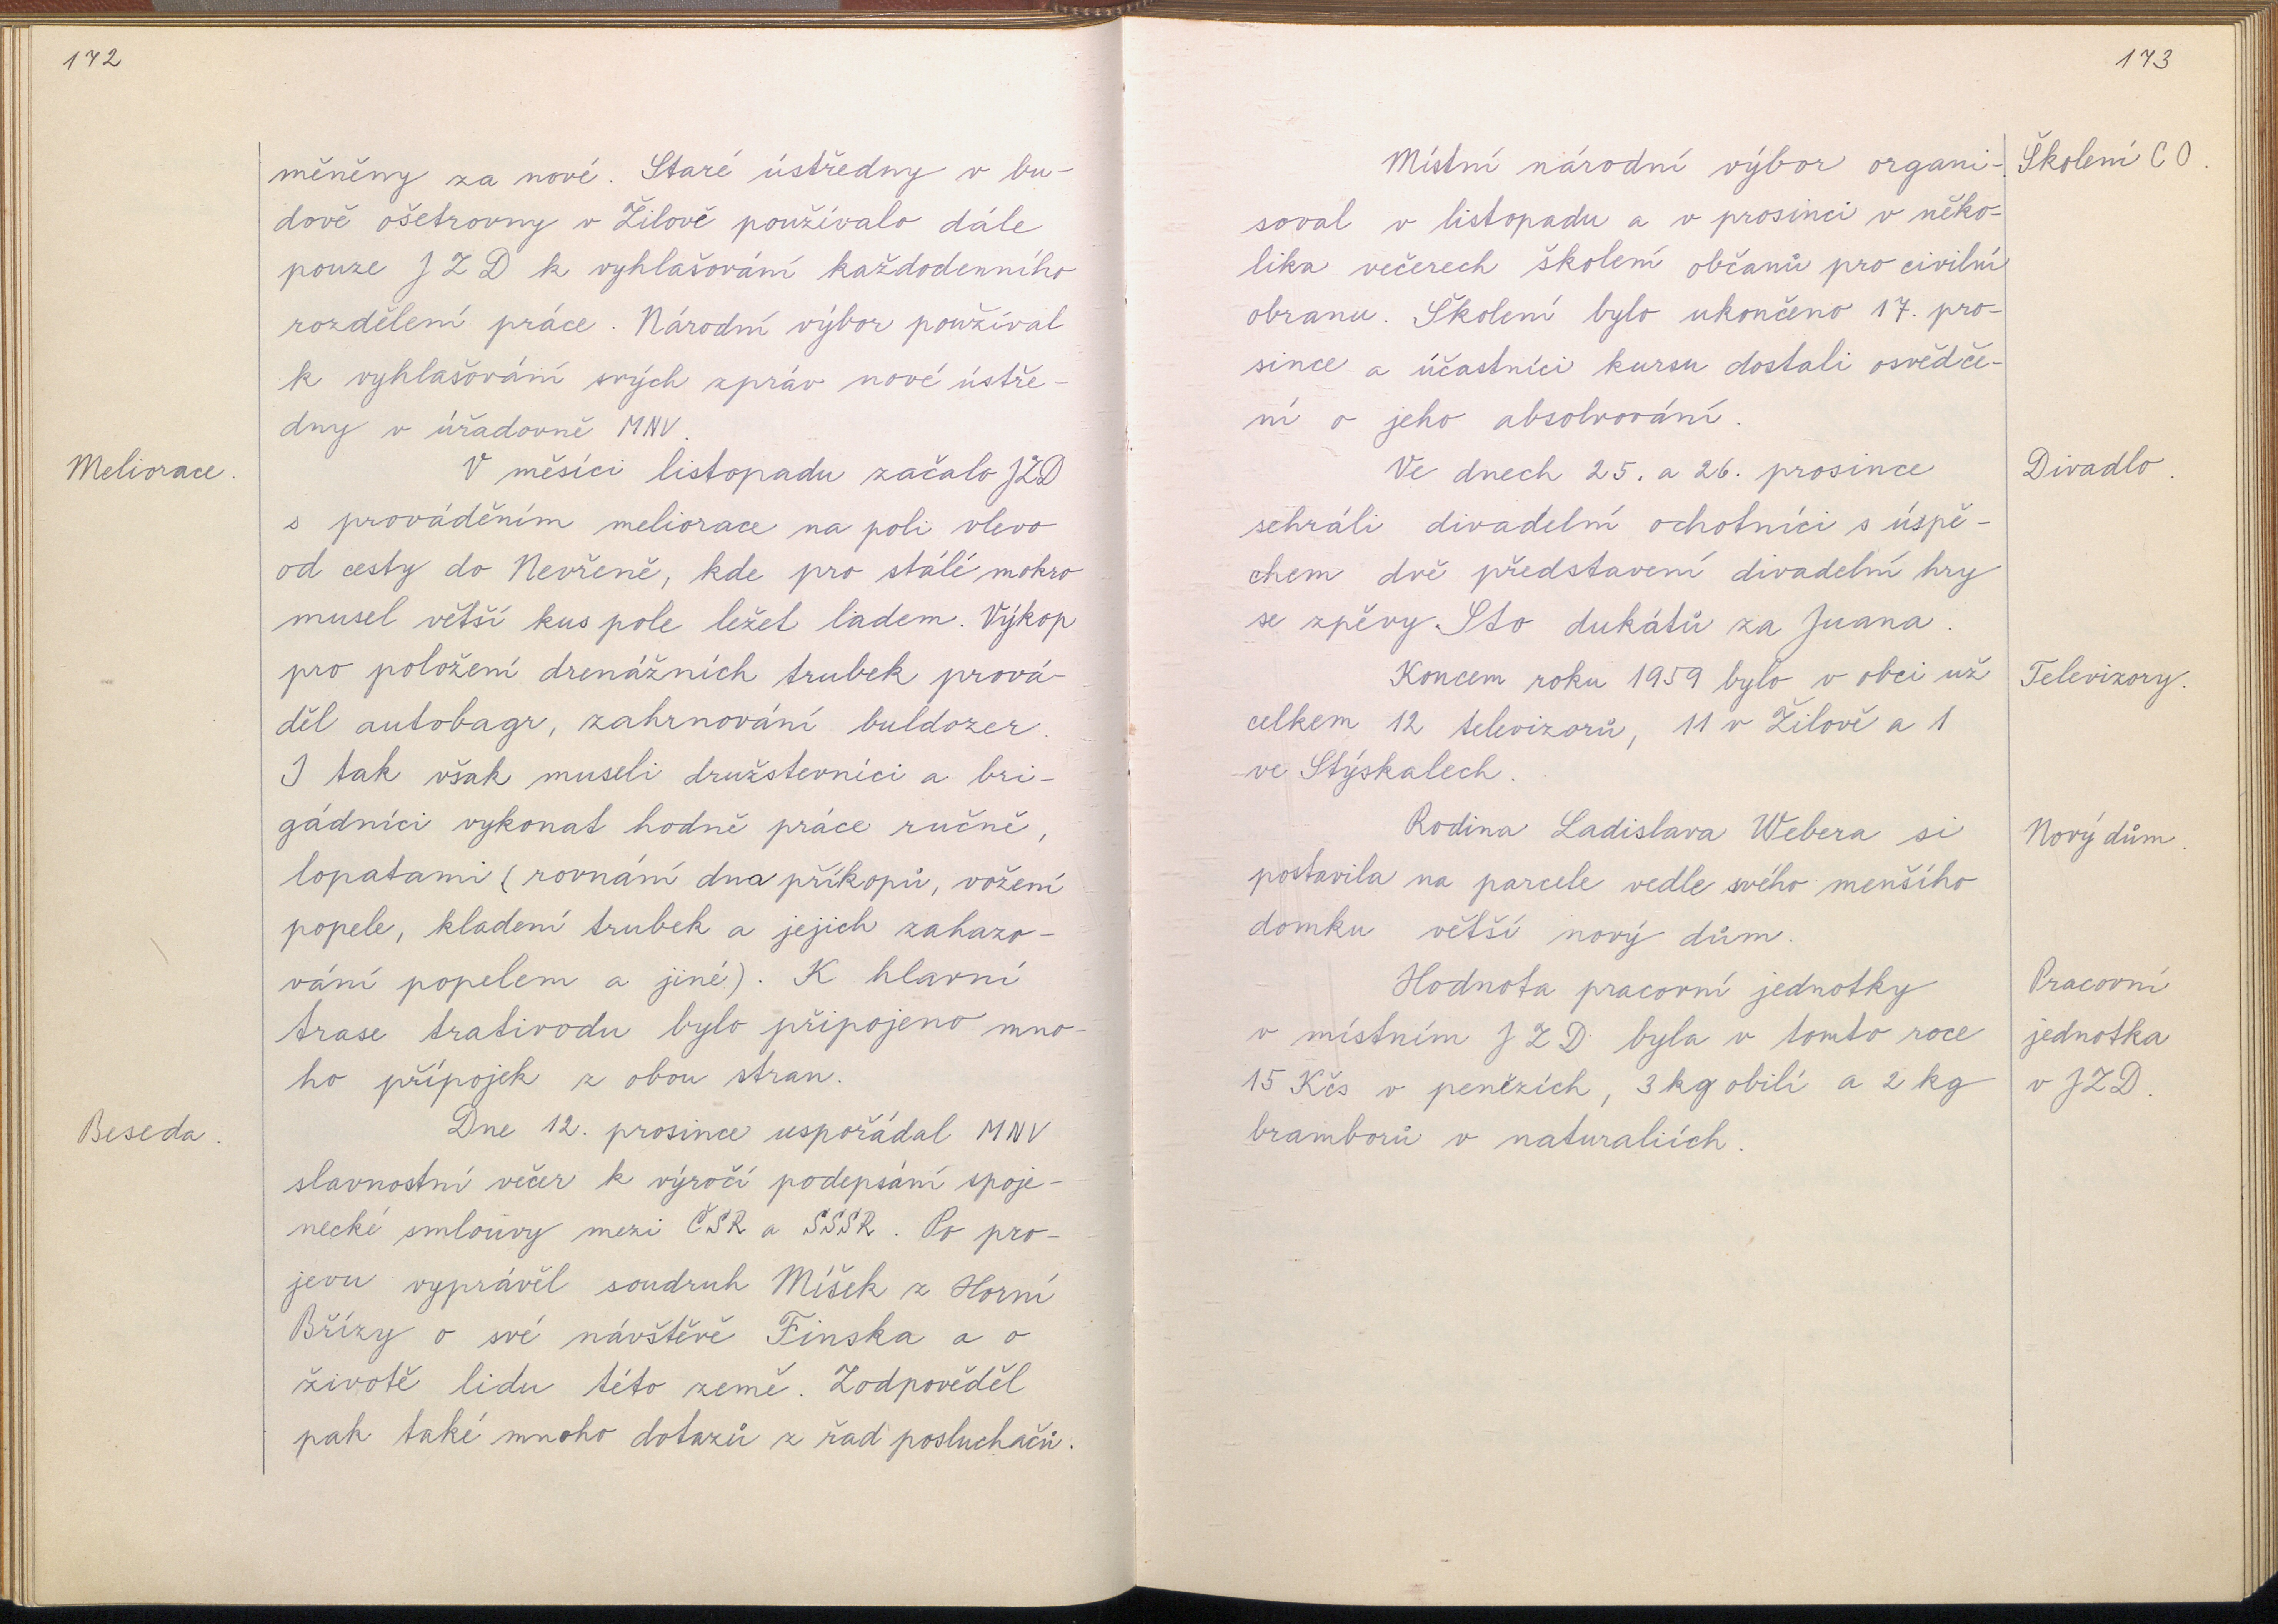 172
měněny za nové. Staré ústředny v bu-
dově ošetrovny v Žilově používalo dále
pouze JZD k vyhlašování každodenního
rozdělení práce. Národní výbor používal
k vyhlašování svých zpráv nové ústře-
dny v úřadovně MNV.
Meliorace.
V měsíci listopadu začalo JZD
s prováděním meliorace na poli vlevo
od cesty do Nevřeně, kde pro stálé mokro
musel větší kus pole ležet ladem. Výkop
pro položení drenážních trubek prová-
děl autobagr, zahrnování buldozer.
I tak však museli družstevníci a bri-
gádníci vykonat hodně práce ručně,
lopatami (rovnání dna příkopů, vožení
popele, kladení trubek a jejich zahazo-
vání popelem a jiné). K hlavní
trase trativodu bylo připojeno mno-
ho přípojek z obou stran.
Beseda.
Dne 12. prosince uspořádal MNV
slavnostní večer k výročí podepsání spoje-
necké smlouvy mezi ČSR a SSSR. Po pro-
jevu vyprávěl soudruh Míšek z Horní
Břízy o své návštěvě Finska a o
životě lidu této země. Zodpověděl
pak také mnoho dotazů z řad posluchačů.
173
Místní národní výbor organi-
Školení CO.
soval v listopadu a v prosinci v něko-
lika večerech školení občanů pro civilní
obranu. Školení bylo ukončeno 17. pro-
since a účastníci kursu dostali osvědče-
ní o jeho absolvování.
Ve dnech 25. a 26. prosince
Divadlo.
sehráli divadelní ochotníci s úspě-
chem dvě představení divadelní hry
se zpěvy Sto dukátů za Juana.
Koncem roku 1959 bylo v obci už
Televizory.
celkem 12 televizorů, 11 v Žilově a 1
ve Stýskalech.
Rodina Ladislava Webera si
Nový dům.
postavila na parcele vedle svého menšího
domku větší nový dům.
Hodnota pracovní jednotky
Pracovní
v místním JZD byla v tomto roce
jednotka
15 Kčs v penězích, 3 kg obilí a 2 kg
v JZD.
bramborů v naturaliích.